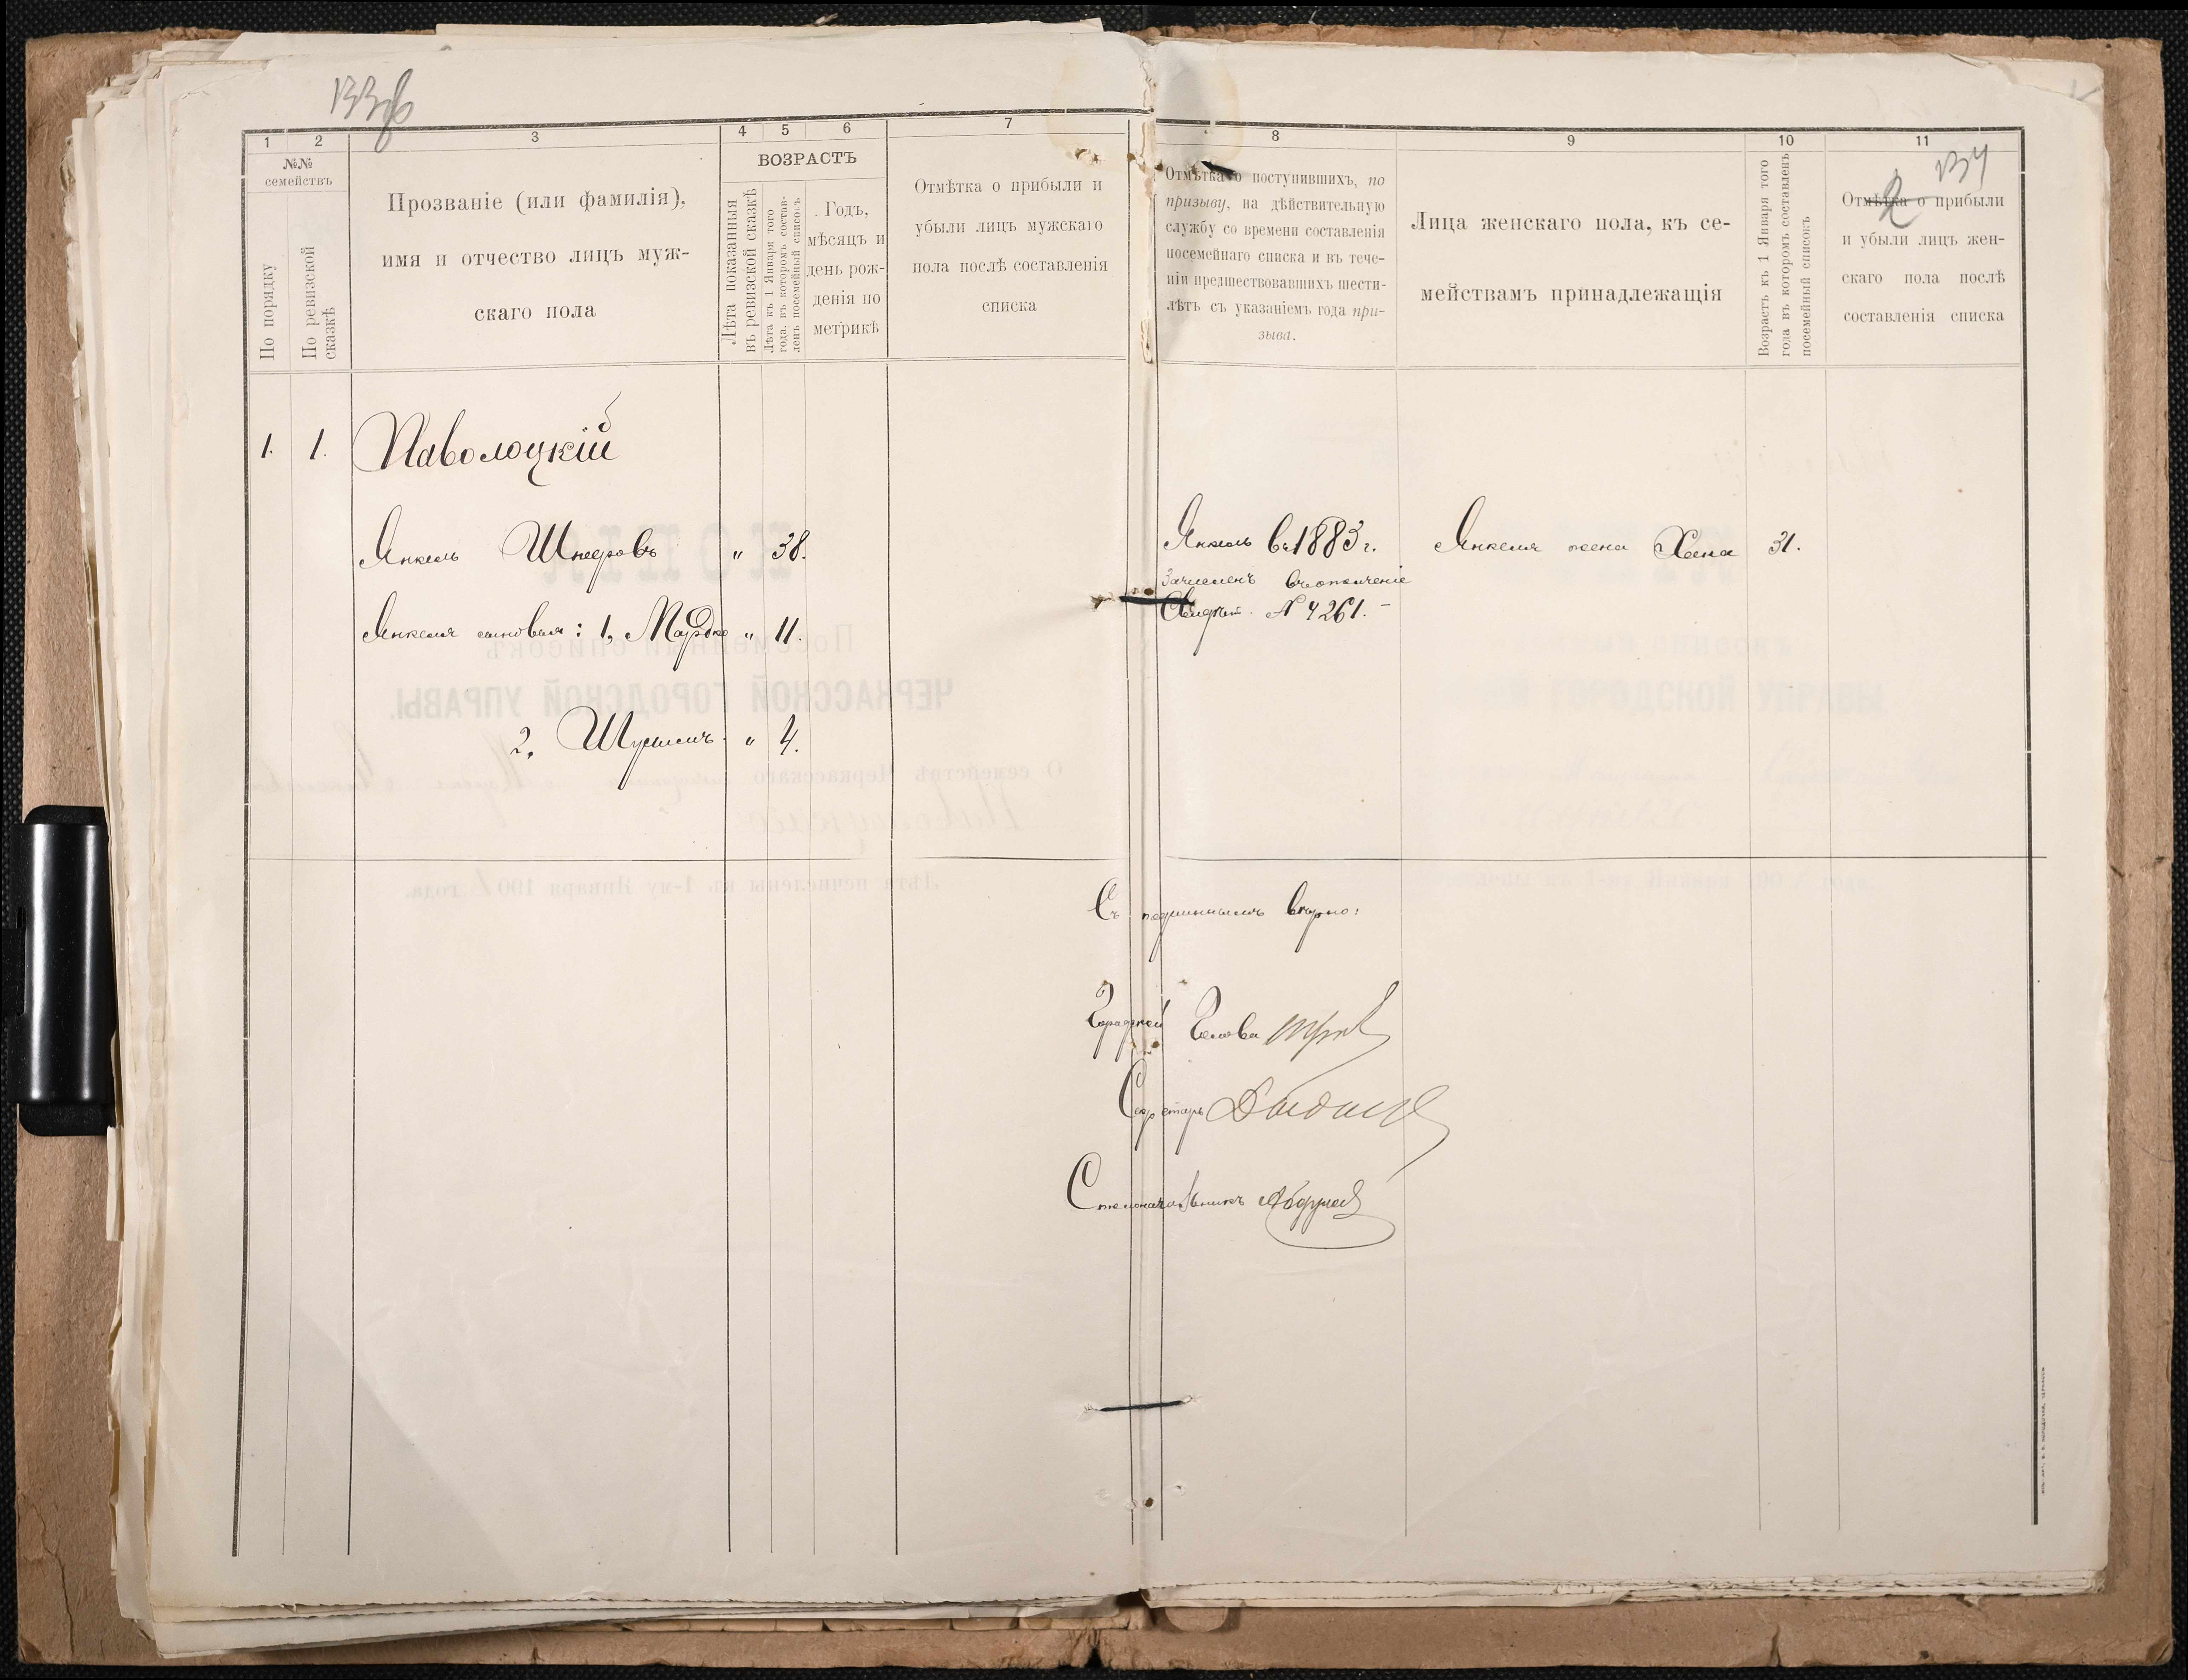 133об
134
2
1 2 3 4 5 6 7 8 9 10 11
№№ семействъ
По порядку
По ревизской сказкѣ
Прозваніе (или фамилія),
имя и отчество лицъ муж-
скаго пола
ВОЗРАСТЪ
Лѣта показанныя
въ ревизской сказкѣ
Лѣта къ 1 Января того
года, въ которомъ состав-
ленъ посемейный списокъ
Годъ,
мѣсяцъ и
день рож-
денія по
метрикѣ
Отмѣтка о прибыли и
убыли лицъ мужскаго
пола послѣ составленія
списка
Отмѣтка о поступившихъ, по
призыву, на дѣйствительную
службу со времени составленія
посемейнаго списка и въ тече-
ніи предшествовавшихъ шести-
лѣтъ съ указаніемъ года при-
зыва.
Лица женскаго пола, къ се-
мействамъ принадлежащія
Возрастъ къ 1 Января того
года въ которомъ составленъ
посемейный списокъ
Отмѣтка о прибыли
и убыли лицъ жен-
скаго пола послѣ
составленія списка
1. 1. Паволоцкій
Янкель Шнеровъ " 38.
Янкель въ 1883 г.
Зачисленъ въ ополченіе
Свидѣт. № 4261. -
Янкеля жена Хана 31.
Янкеля сыновья: 1, Мордко " 11.
2. Шулимъ " 4.
Съ подлиннымъ вѣрно:
Городской Голова
Секретарь
Столоначальникъ
КОПІЯ
Посемейный списокъ
ЧЕРКАССКОЙ ГОРОДСКОЙ УПРАВЫ.
О семействѣ Черкасскаго
Паволоцкаго
Лѣта исчислены къ 1-му Января 190 года.